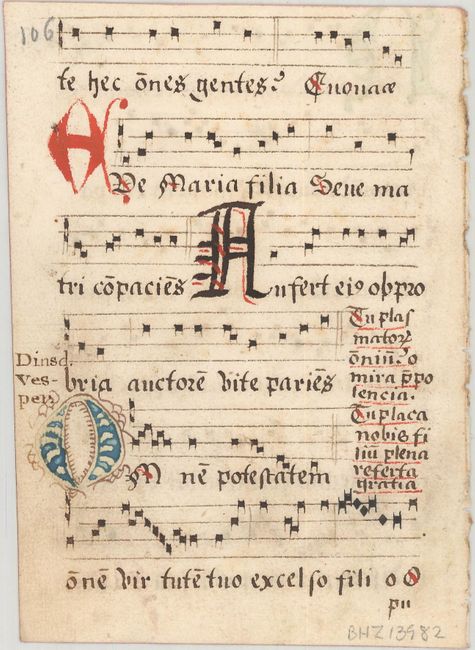 106
te hec õnes gentes? Euouae
AVe Maria filia Seue ma
tri cõpaciẽs Aufert ei9 obpro
bria auctorẽ vite pariẽs
Tu plas
mator
õniũ? o
mira p̃po
tencia.
Tu placa
nobis fi
liũ plena
referta
gratia
Dinsd.
Ves-
per.
OM nẽ potestatem
õnẽ vir tutẽ tuo excelso fili o O
pu
BHZ 13982